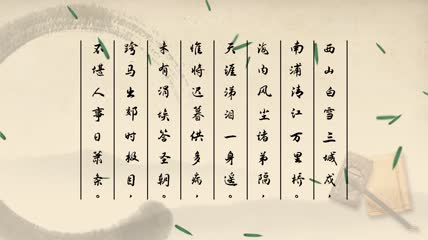 西山白雪三城戍，
南浦清江万里桥。
海内风尘诸弟隔，
天涯涕泪一身遥。
惟将迟暮供多病，
未有涓埃答圣朝。
跨马出郊时极目，
不堪人事日萧条。